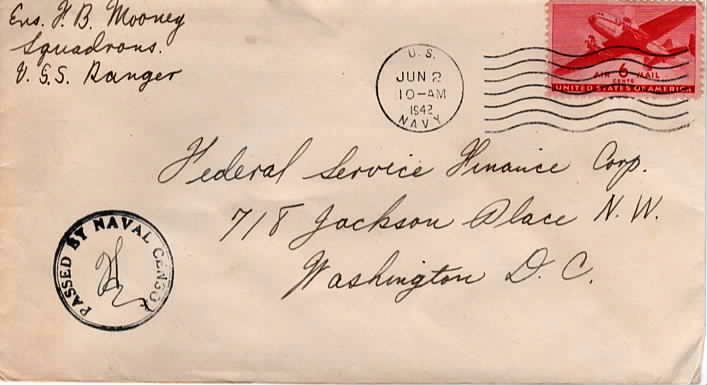 Ens. H. B. Mooney
Squadrons.
U. S. S. Ranger
U. S.
JUN 2
10-AM
1942
NAVY
AIR 6 MAIL
CENTS
UNITED STATES OF AMERICA
Federal Service Finance Corp.
718 Jackson Place N. W.
Washington D. C.
PASSED BY NAVAL CENSOR